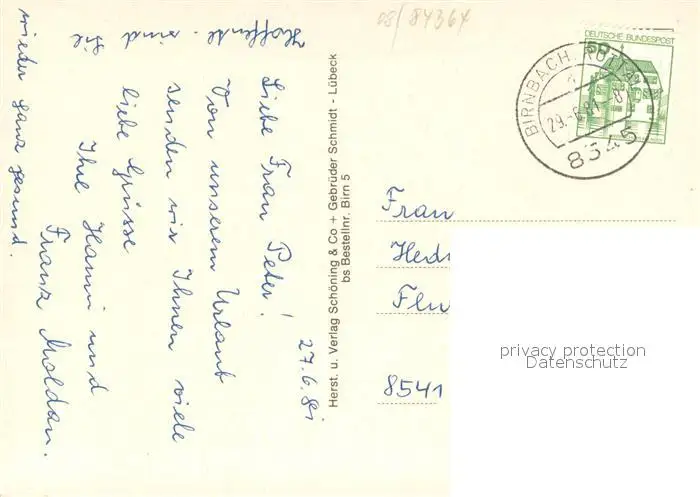 08/84364
DEUTSCHE BUNDESPOST
50
BIRNBACH, ROTTAL
29.-6.81.-8
8345
27.6.81
Liebe Frau Peter!
Von unserem Urlaub
senden wir Ihnen viele
liebe Grüsse
Ihre Hanni und
Franz Moldan.
Hoffentl. sind Sie
wieder ganz gesund.
Herst. u. Verlag Schöning & Co + Gebrüder Schmidt - Lübeck
bs Bestellnr. Birn 5
Frau
Hed
Flu
8541
privacy protection
Datenschutz